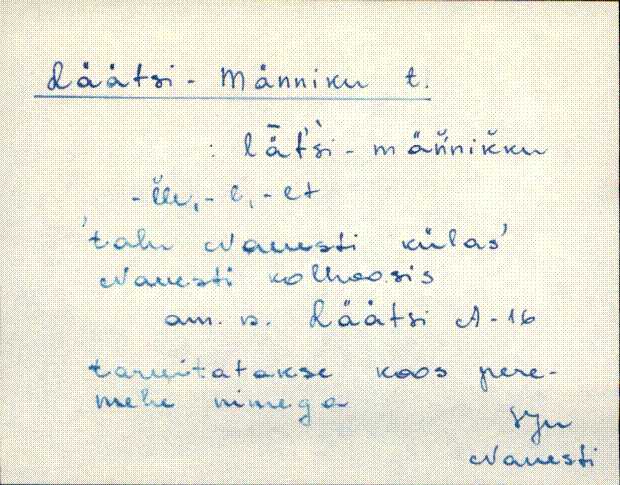 Läätsi - Männiku t.
: lǟt̀'śi - mäň́nikku
- ĭle, - l, - lt
'talu Navesti külas'
Navesti kolhoosis
am. n. Läätsi A-16
tarvitatakse koos pere-
mehe nimega
SJn
Navesti